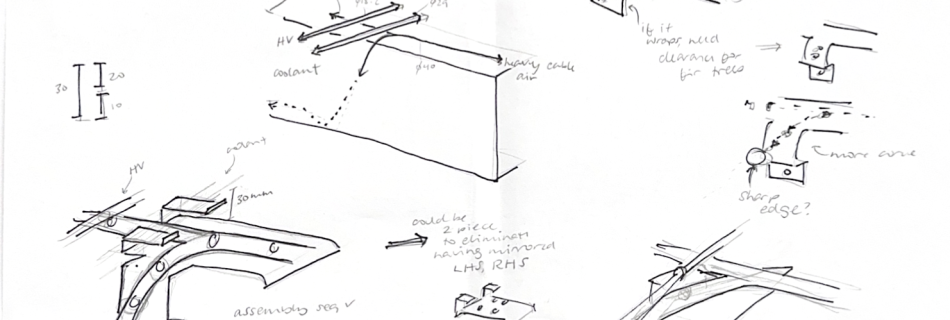 HV
coolant
heavy cable
air
30
20
10
if it
wraps, need
clearance for
fir trees
more curve
sharp
edge?
HV
mount
30mm
could be
2 piece
to eliminate
having mirrored
LHS, RHS
assembly seq ✓